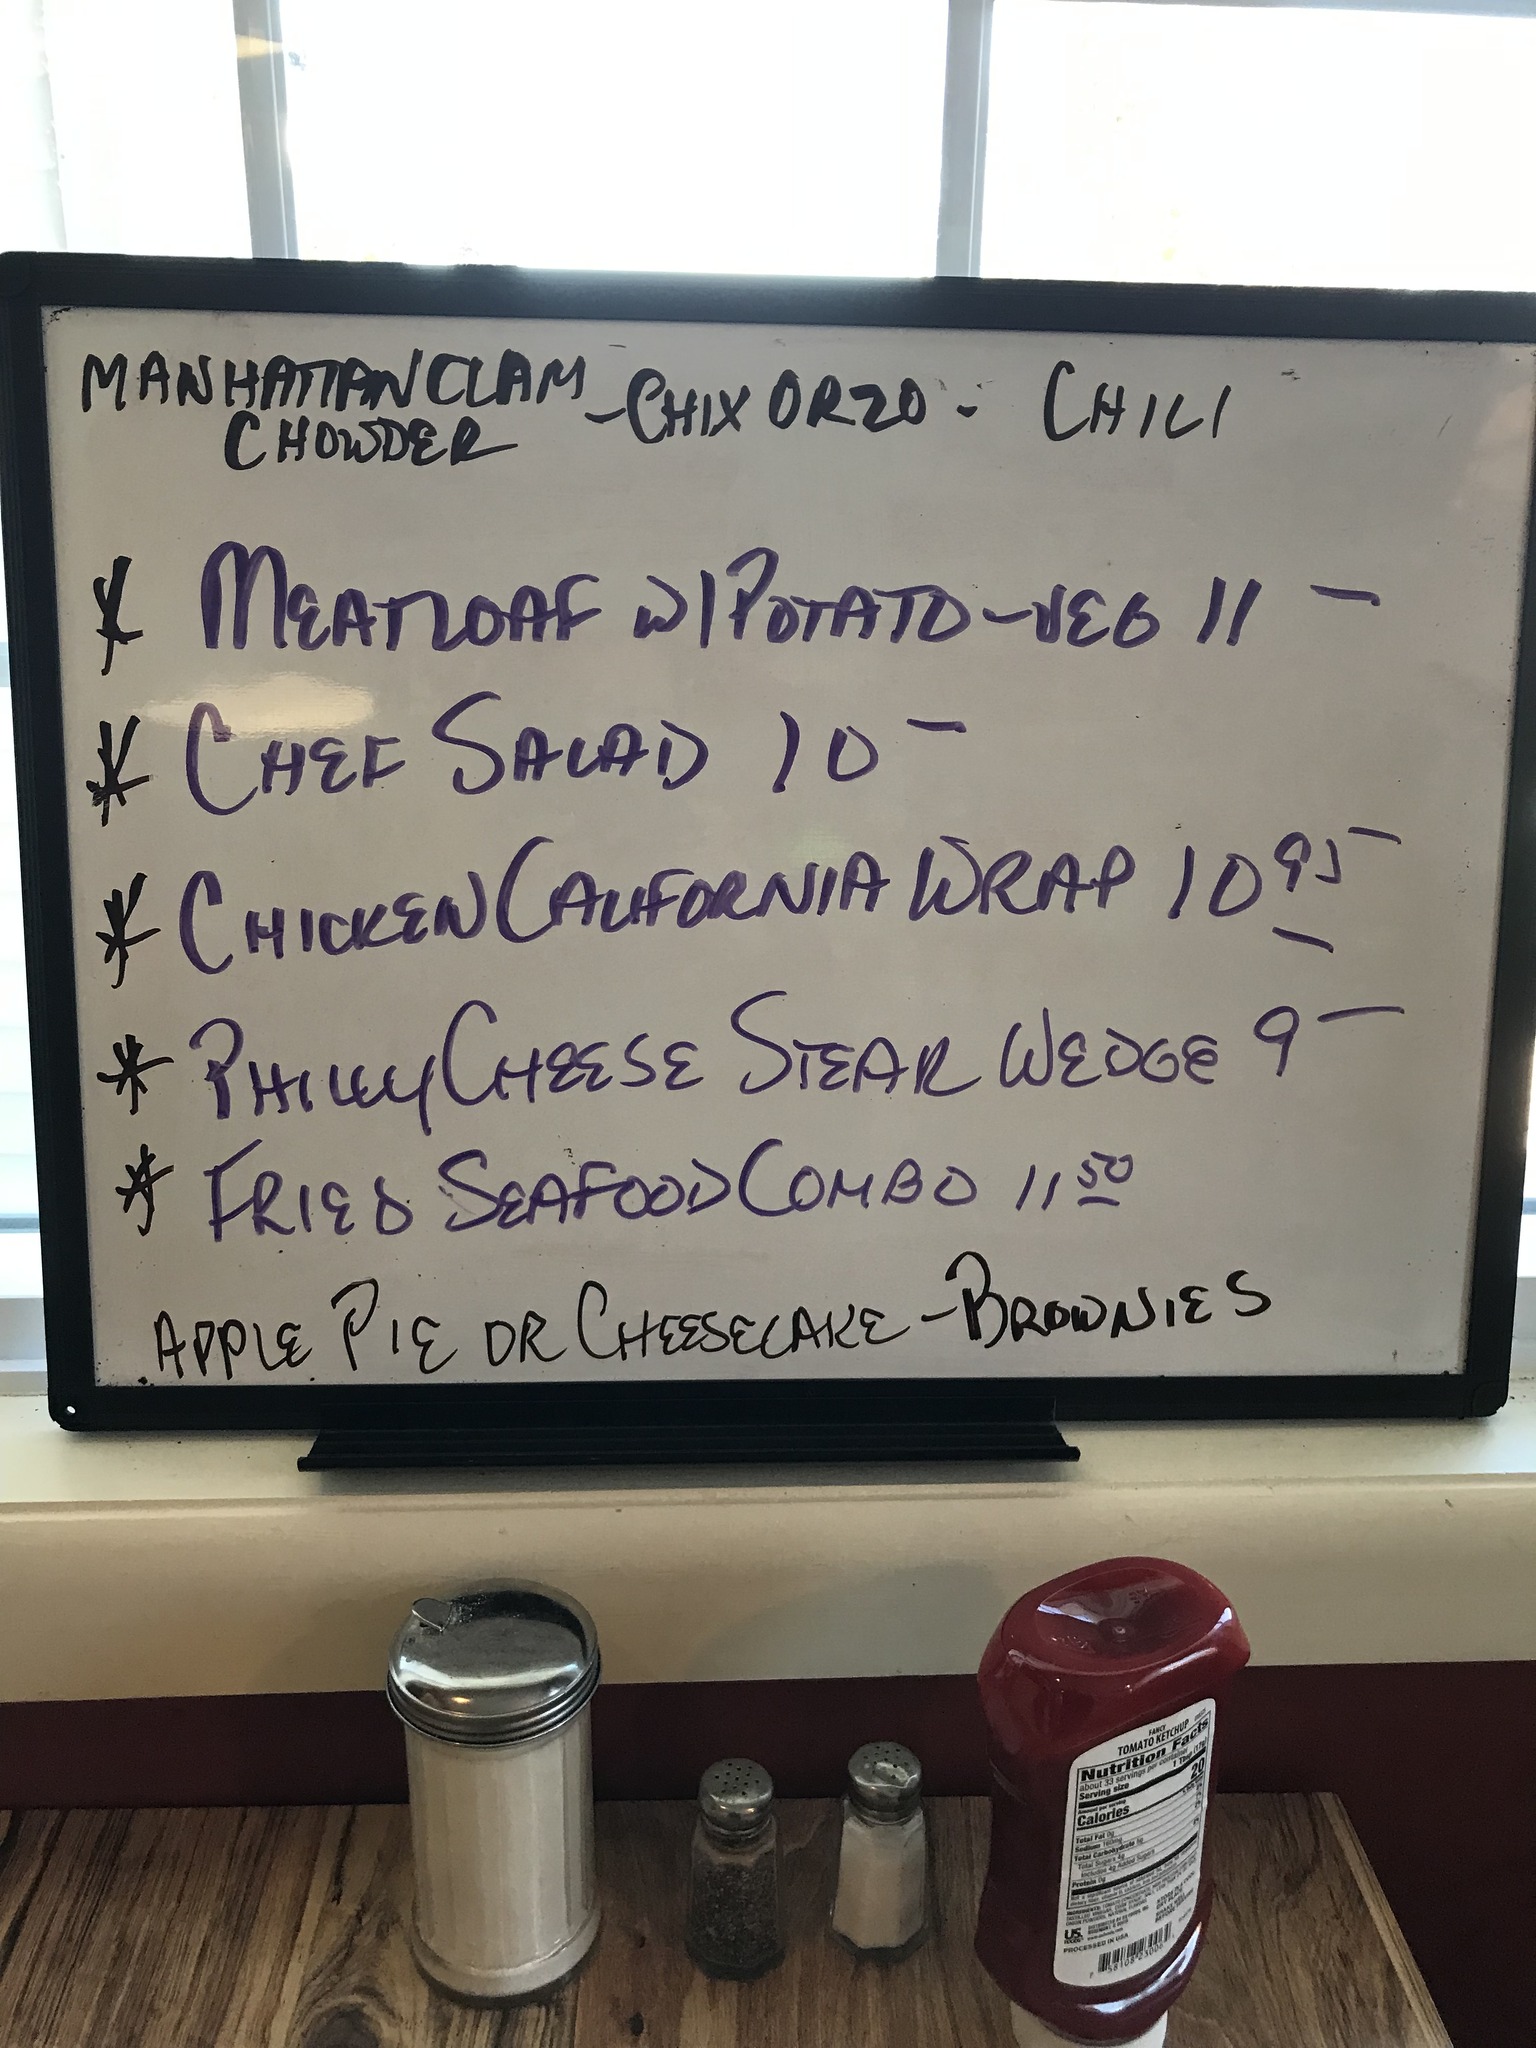 MANHATTAN CLAM CHOWDER - CHIX ORZO - CHILI
* MEATLOAF W/ POTATO - VEG 11 -
* CHEF SALAD 10 -
* CHICKEN CALIFORNIA WRAP 10 95 -
* PHILLY CHEESE STEAK WEDGE 9 -
* FRIED SEAFOOD COMBO 11 50
APPLE PIE OR CHEESECAKE - BROWNIES
FANCY
TOMATO KETCHUP
Nutrition Facts
about 33 servings per container
Serving size 1 Tbsp (17g)
Amount per serving
Calories 20
Total Fat 0g
Sodium 160mg
Total Carbohydrate 5g
Total Sugars 4g
Includes 4g Added Sugars
Protein 0g
US.
PROCESSED IN USA